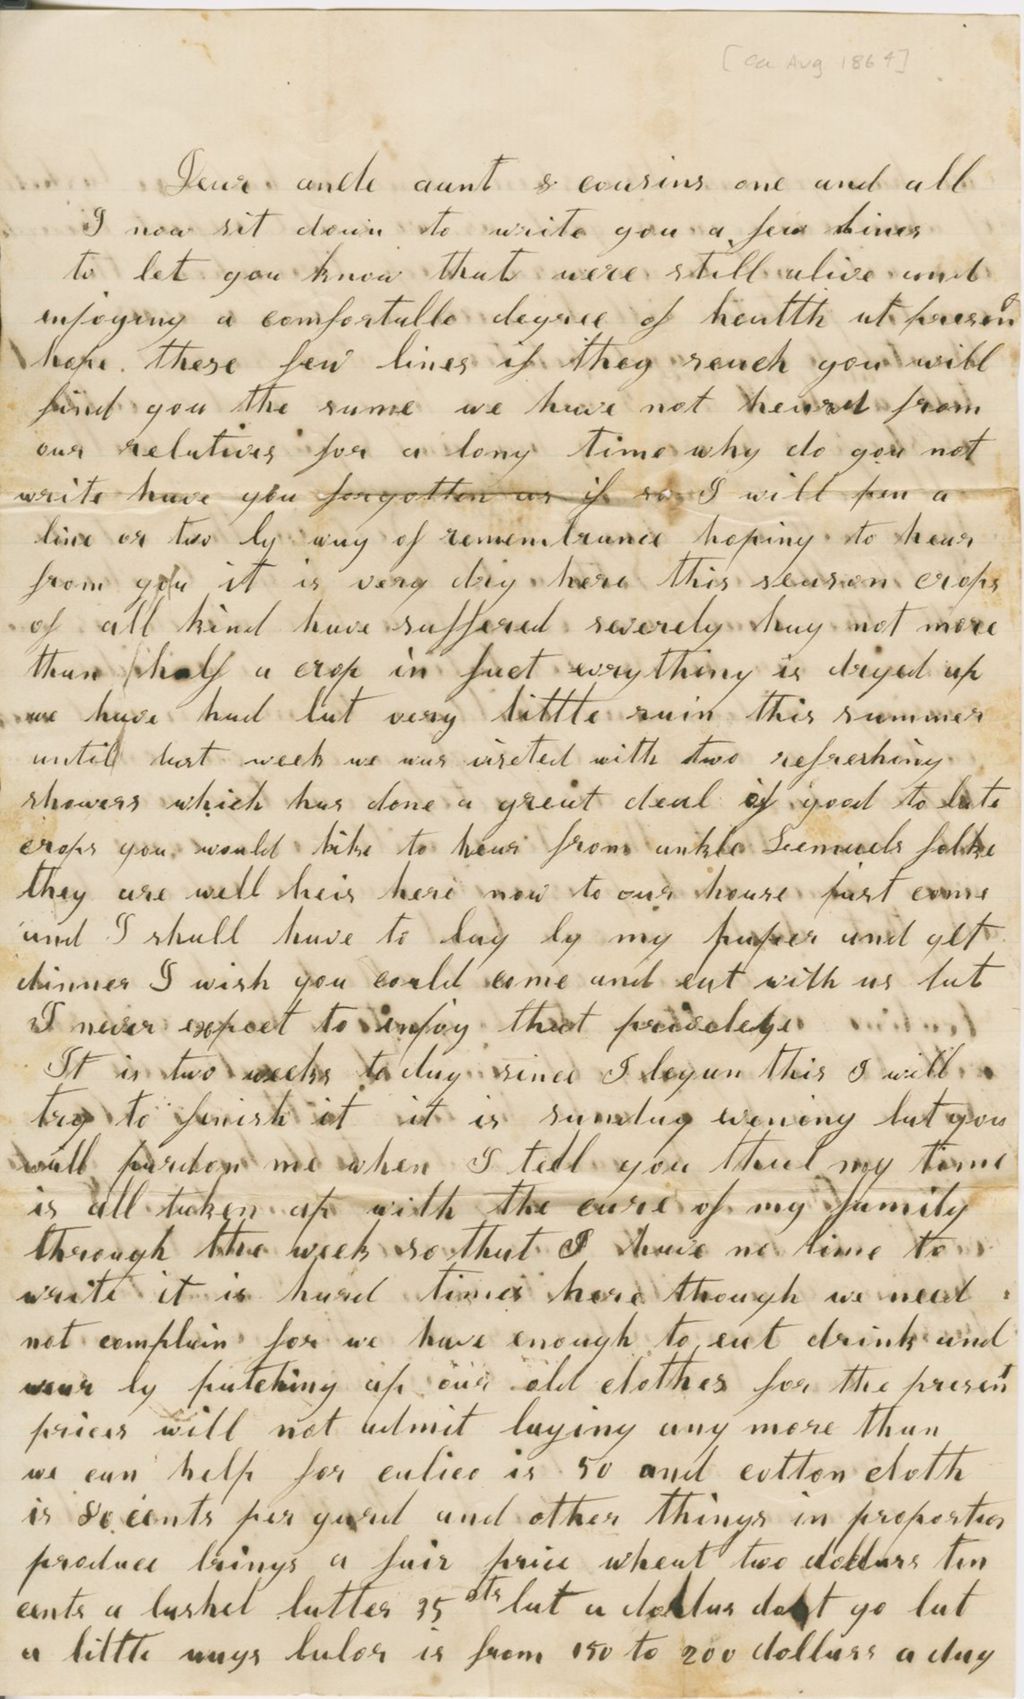 [ca Aug 1864]
Dear uncle aunt & cousins one and all
I now sit down to write you a few lines
to let you know that were still alive and
injoying a comfortable degree of healtth at present
hope these few lines if they reach you will
find you the same we have not heard from
our relatives for a long time why do you not
write have you forgotten us if so I will pen a
line or two by way of remembrance hoping to hear
from you it is very dry here this season crops
of all kind have suffered severely hay not more
than half a crop in fact evrything is dryed up
we have had but very little rain this summer
until last week we was viseted with two refreshing
showers which has done a great deal of good to late
crops you would like to hear from unkle Lemuels folke
they are well heis here now to our house just come
and I shall have to lay by my paper and get
dinner I wish you could come and eat with us but
I never expect to injoy that privelege
It is two weeks to day since I begun this I will
try to finish it it is sunday evening but you
will pardon me when I tell you that my time
is all taken up with the care of my family
through the week so that I have no time to
write it is hard times here though we need
not complain for we have enough to eat drink and
wear by patching up our old clothes for the present
prices will not admit buying any more than
we can help for calico is 50 and cotton cloth
is 80 cents per yard and other things in proportion
produce brings a fair price wheat two dollars ten
cents a bushel butter 35 cts but a dollar dont go but
a little ways labor is from 150 to 200 dollars a day